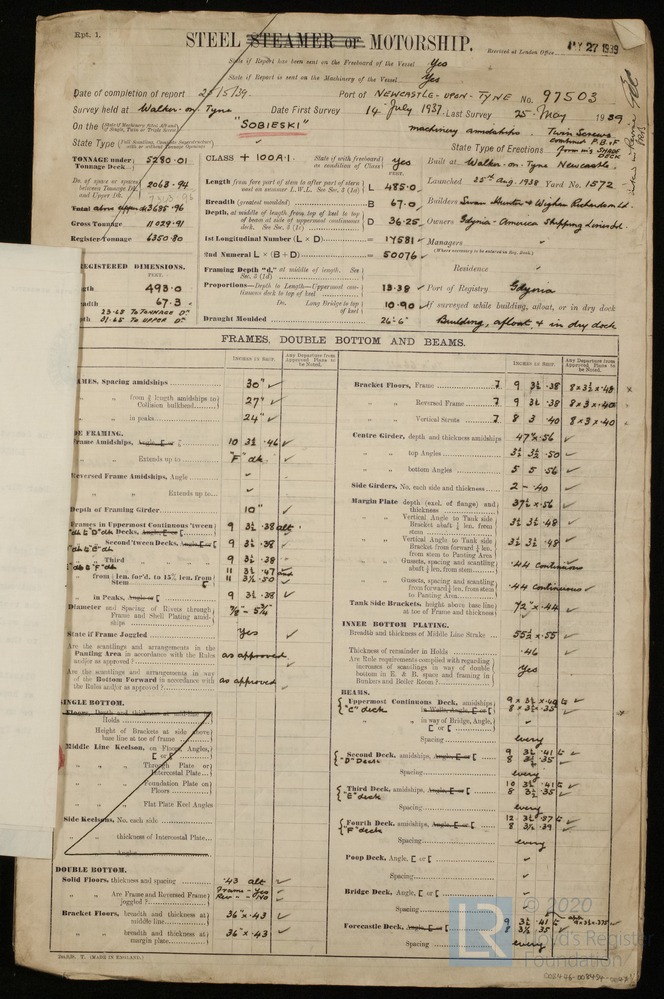 Rpt. 1.
STEEL STEAMER or MOTORSHIP.
Received at London Office MAY 27 1939
State if Report has been sent on the Freeboard of the Vessel Yes
State if Report is sent on the Machinery of the Vessel Yes
Date of completion of report 25/5/39. Port of NEWCASTLE-UPON-TYNE No. 97503
Survey held at Walker-on-Tyne Date First Survey 14 July 1937 Last Survey 25 May 1939
On the "SOBIESKI" machinery amidships. Twin Screws
State Type State Type of Erections
TONNAGE under Tonnage Deck 5280.01
CLASS + 100A1. State if with freeboard as condition of Class Yes
Built at Walker-on-Tyne Newcastle.
Do. of space or spaces between Tonnage Dk. and Upper Dk. 2063.94
Length from fore part of stem to after part of stern post on summer L.W.L. See Sec. 3 (1a) L 485.0
Launched 25th Aug. 1938 Yard No. 1572
Breadth (greatest moulded) B 67.0
Builders Swan Hunter & Wigham Richardson Ld.
Gross Tonnage 11029.91
Depth, at middle of length from top of keel to top of beam at side of uppermost continuous deck. See Sec. 3 (1c) D 36.25
Owners Gdynia-America Shipping Lines Ltd.
Register Tonnage 6350.80
1st Longitudinal Number (L × D) = 17581
Managers
2nd Numeral L × (B + D) = 50076
(Where necessary to be entered in Reg. Book.)
Residence
REGISTERED DIMENSIONS.
FEET.
Framing Depth "d," at middle of length. See Sec. 3 (1d)
493.0
Proportions—Depth to Length—Uppermost continuous deck to top of keel 13.38
Port of Registry Gdynia
67.3
Do. Long Bridge to top of keel 10.90
If surveyed while building, afloat, or in dry dock
23.65 TO TONNAGE Dk
31.65 TO UPPER Dk
Draught Moulded 26'-6"
Building, afloat, & in dry dock
FRAMES, DOUBLE BOTTOM AND BEAMS.
INCHES IN SHIP.
Any Departure from Approved Plans to be Noted.
INCHES IN SHIP.
Any Departure from Approved Plans to be Noted.
FRAMES, Spacing amidships 30"
" " from ⅗ length amidships to Collision bulkhead 27"
" " in peaks 24"
SIDE FRAMING.
Frame Amidships, Angle, E or [ 10 3½ .46
" " Extends up to "F" dk.
Reversed Frame Amidships, Angle
" " Extends up to
Depth of Framing Girder 10"
Frames in Uppermost Continuous 'tween Decks, Angle, E or [ 9 3½ .38 alt.
" " Second 'tween Decks, Angle, E or [ 9 3½ .38
" " Third " " 9 3½ .38
" " from ⅕ len. for'd. to 15% len. from Stem 11 3½ .47
11 3½ .50
" " in Peaks, Angle or [ 9 3½ .38
Diameter and Spacing of Rivets through Frame and Shell Plating amidships 7/8 - 5¾
State if Frame Joggled Yes
Are the scantlings and arrangements in the Panting Area in accordance with the Rules and/or as approved? as approved
Are the scantlings and arrangements in way of the Bottom Forward in accordance with the Rules and/or as approved? as approved
SINGLE BOTTOM.
Floors, Depth and thickness at mid-line in Holds
Height of Brackets at side above base line at toe of frame
Middle Line Keelson, on Floors, Angles, E or [
" " Through Plate or Intercostal Plate
" " Foundation Plate on Floors
" " Flat Plate Keel Angles
Side Keelsons, No. each side
" " thickness of Intercostal Plate
" " Angles
DOUBLE BOTTOM.
Solid Floors, thickness and spacing .43 alt
" " Are Frame and Reversed Frame joggled? Frame - Yes
Rev - No
Bracket Floors, breadth and thickness at middle line 36" x .43
" " breadth and thickness at margin plate 36" x .43
Bracket Floors, Frame 7 9 3½ .38 8 x 3½ x .43
" " Reversed Frame 7 9 3½ .38 8 x 3 x .40
" " Vertical Struts 7 8 3 .40 8 x 3 x .40
Centre Girder, depth and thickness amidships 47" x .56
" " top Angles 3½ 3½ .50
" " bottom Angles 5 5 .56
Side Girders, No. each side and thickness 2 - .40
Margin Plate depth (excl. of flange) and thickness 37½ x .56
" " Vertical Angle to Tank side Bracket abaft ¼ len. from stem 3½ 3½ .48
" " Vertical Angle to Tank side Bracket from forward ¼ len. from stem to Panting Area 3½ 3½ .48
" " Gussets, spacing and scantling abaft ¼ len. from stem .44 Continuous
" " Gussets, spacing and scantling from forward ¼ len. from stem to Panting Area .44 Continuous
Tank Side Brackets, height above base line at toe of Frame and thickness 72" x .44
INNER BOTTOM PLATING.
Breadth and thickness of Middle Line Strake 55½ x .55
Thickness of remainder in Holds .46
Are Rule requirements complied with regarding increases of scantlings in way of double bottom in E. & B. space and framing in Bunkers and Boiler Room? Yes
BEAMS.
Uppermost Continuous Deck, amidships 9 x 3½ x .40 &
"C" deck 8 x 3½ x .35
" " in way of Bridge, Angle, E or [
Spacing every
Second Deck, amidships, Angle, E or [ 9 3½ .41 &
"D" Deck 8 3½ .35
Spacing every
Third Deck, amidships, Angle, E or [ 10 3½ .41 &
"E" deck 8 3½ .35
Spacing every
Fourth Deck, amidships, Angle, E or [ 12 3½ .57 &
"F" deck 8 3½ .39
Spacing every
Poop Deck, Angle, E or [
Spacing
Bridge Deck, Angle, E or [
Spacing
Forecastle Deck, Angle, E or [ 9 3½ .41 &
8 3½ .35
Spacing every
(MADE IN ENGLAND.)
LR
© 2020
Lloyd's Register
Foundation